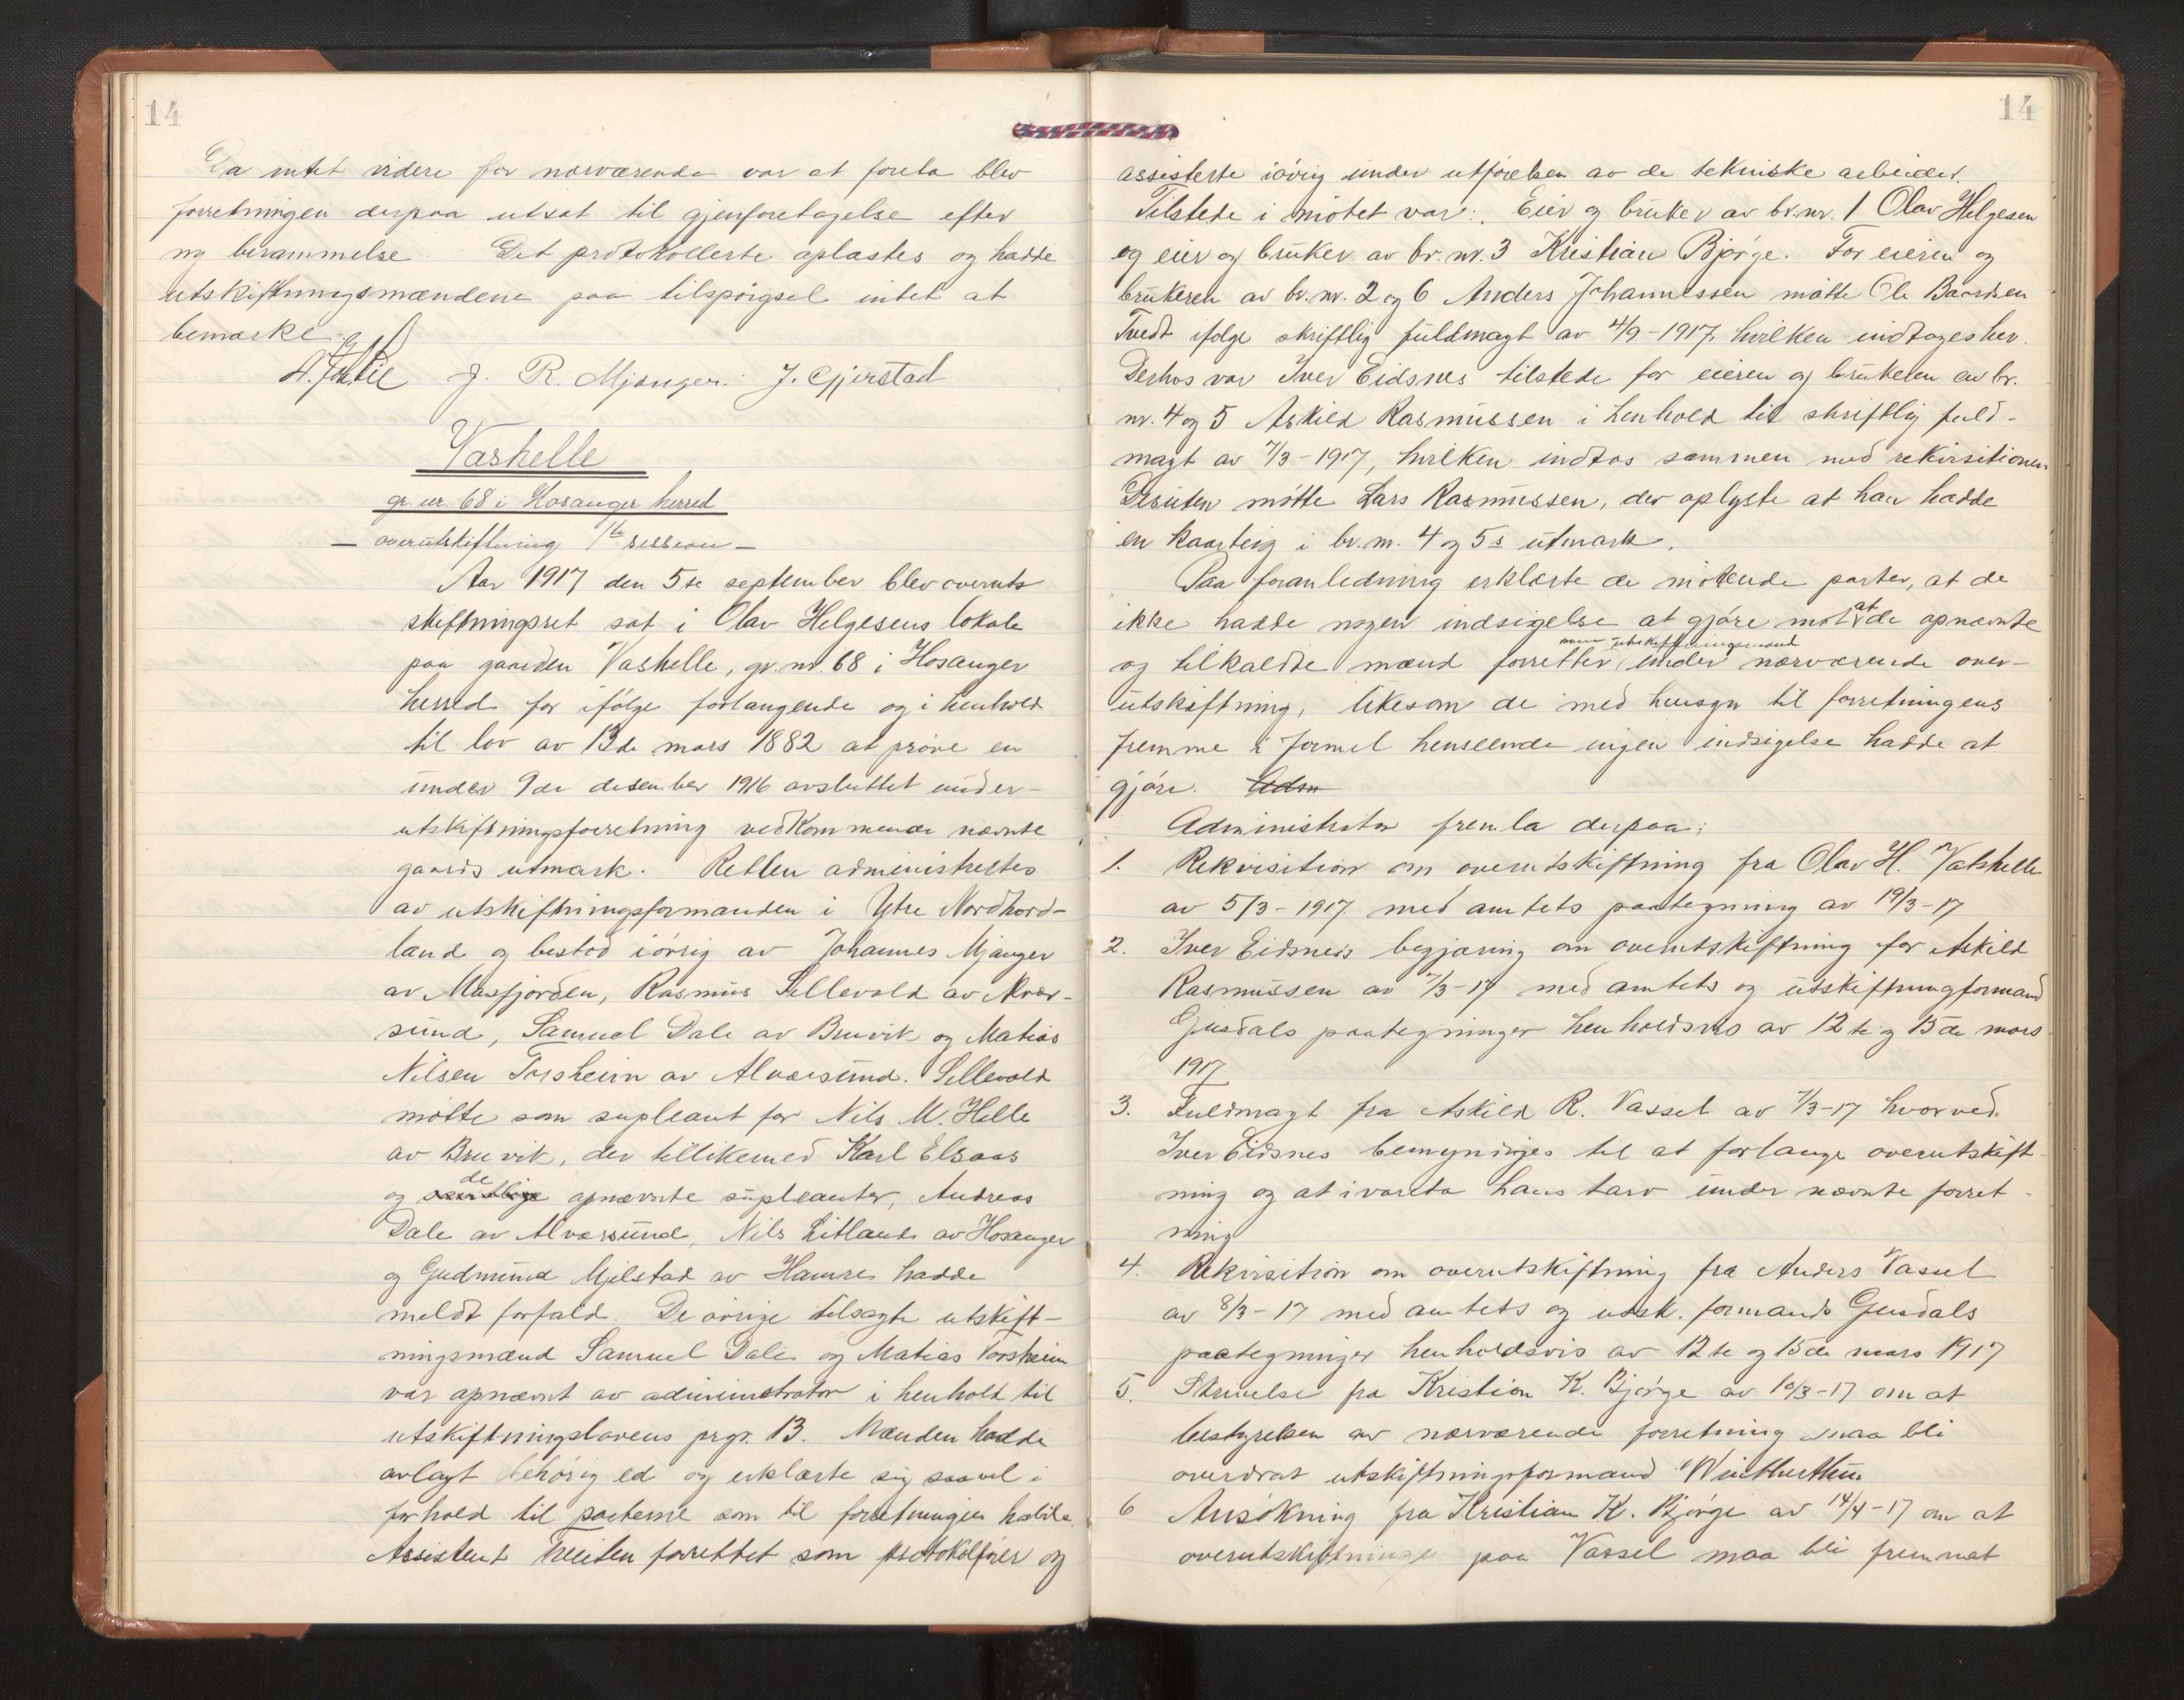 14
Da intet videre for nærværende var at foreta blev
forretningen derpaa utsat til gjenforetagelse efter
ny berammelse. Det protokollerte oplæstes og hadde
utskiftningsmændene paa tilspørgsel intet at
bemærke.
J. R. Mjanger. J. Gjerstad
Vashelle
gr. nr. 68 i Hosanger herred
— overutskiftning 1ste session —
Aar 1917 den 5te september blev overuts
skiftningsret sat i Olav Helgesens lokale
paa gaarden Vashelle, gr. nr. 68 i Hosanger
herred for ifølge forlangende og i henhold
til lov av 13de mars 1882 at prøve en
under 9de desember 1916 avsluttet under-
utskiftningsforretning vedkommende nævnte
gaards utmark. Retten administrertes
av utskiftningsformanden i Ytre Nordhord-
land og bestod iøvrig av Johannes Mjanger
av Masfjorden, Rasmus Sellevold av Alvær-
sund, Samuel Dale av Bruvik og Matias
Nilsen Torsheim av Alværsund. Sellevold
møtte som supleant for Nils M. Helle
av Bruvik, der tillikemed Karl Elsaas
og samtlige de opnævnte supleanter, Andreas
Dale av Alværsund, Nils Litland av Hosanger
og Gudmund Mjelstad av Hamre hadde
meldt forfald. De øvrige tilsagte utskift-
ningsmænd Samuel Dale og Matias Torsheim
var opnævnt av administrator i henhold til
utskiftningslovens prgr. 13. Mænden hadde
avlagt behørig ed og erklærte sig saavel i
forhold til parterne som til forretningen habile.
Assistent Treiten forrettet som protokolfører og
14
assisterte iøvrig under utførelsen av de tekniske arbeider.
Tilstede i møtet var: Eier og bruker av br. nr. 1 Olav Helgesen
og eier og bruker av br. nr. 3 Kristian Bjørge. For eieren og
brukeren av br. nr. 2 og 6 Anders Johannessen møtte Ole Baardsen
Tvedt ifølge skriftlig fuldmagt av 4/9-1917, hvilken indtages her.
Derhos var Iver Eidsnes tilstede for eieren og brukeren av br.
nr. 4 og 5 Askild Rasmussen i henhold til skriftlig fuld-
magt av 7/3-1917, hvilken indtas sammen med rekvisitionen
Desuten møtte Lars Rasmussen, der oplyste at han hadde
en kaarteig i br. nr. 4 og 5s utmark.
Paa foranledning erklærte de møtende parter, at de
ikke hadde nogen indsigelse at gjøre mot at de opnævnte
og tilkaldte mænd forretter som utskiftningsmænd under nærværende over-
utskiftning, likesom de med hensyn til forretningens
fremme i formel henseende ingen indsigelse hadde at
gjøre. Adm
Administrator fremla derpaa:
1. Rekvisition om overutskiftning fra Olav H. Vatshelle
av 5/3-1917 med amtets paategning av 19/3-17
2. Iver Eidsnes begjæring om overutskiftning for Askild
Rasmussen av 7/3-17 med amtets og utskiftningformand
Gjesdals paategninger henholdsvis av 12te og 15de mars
1917
3. Fuldmagt fra Askild R. Vassel av 7/3-17 hvorved
Iver Eidsnes bemyndiges til at forlange overutskift-
ning og at ivareta hans tarv under nævnte forret-
ning
4. Rekvisition om overutskiftning fra Anders Vassel
av 8/3-17 med amtets og utsk. formands Gjesdals
paategninger henholdsvis av 12te og 15de mars 1917
5. Skrivelse fra Kristian K. Bjørge av 10/3-17 om at
bestyrelsen av nærværende forretning maa bli
overdrat utskiftningsformand Winterthun
6 Ansøkning fra Kristian K. Bjørge av 14/4-17 om at
overutskiftningen paa Vassel maa bli fremmet